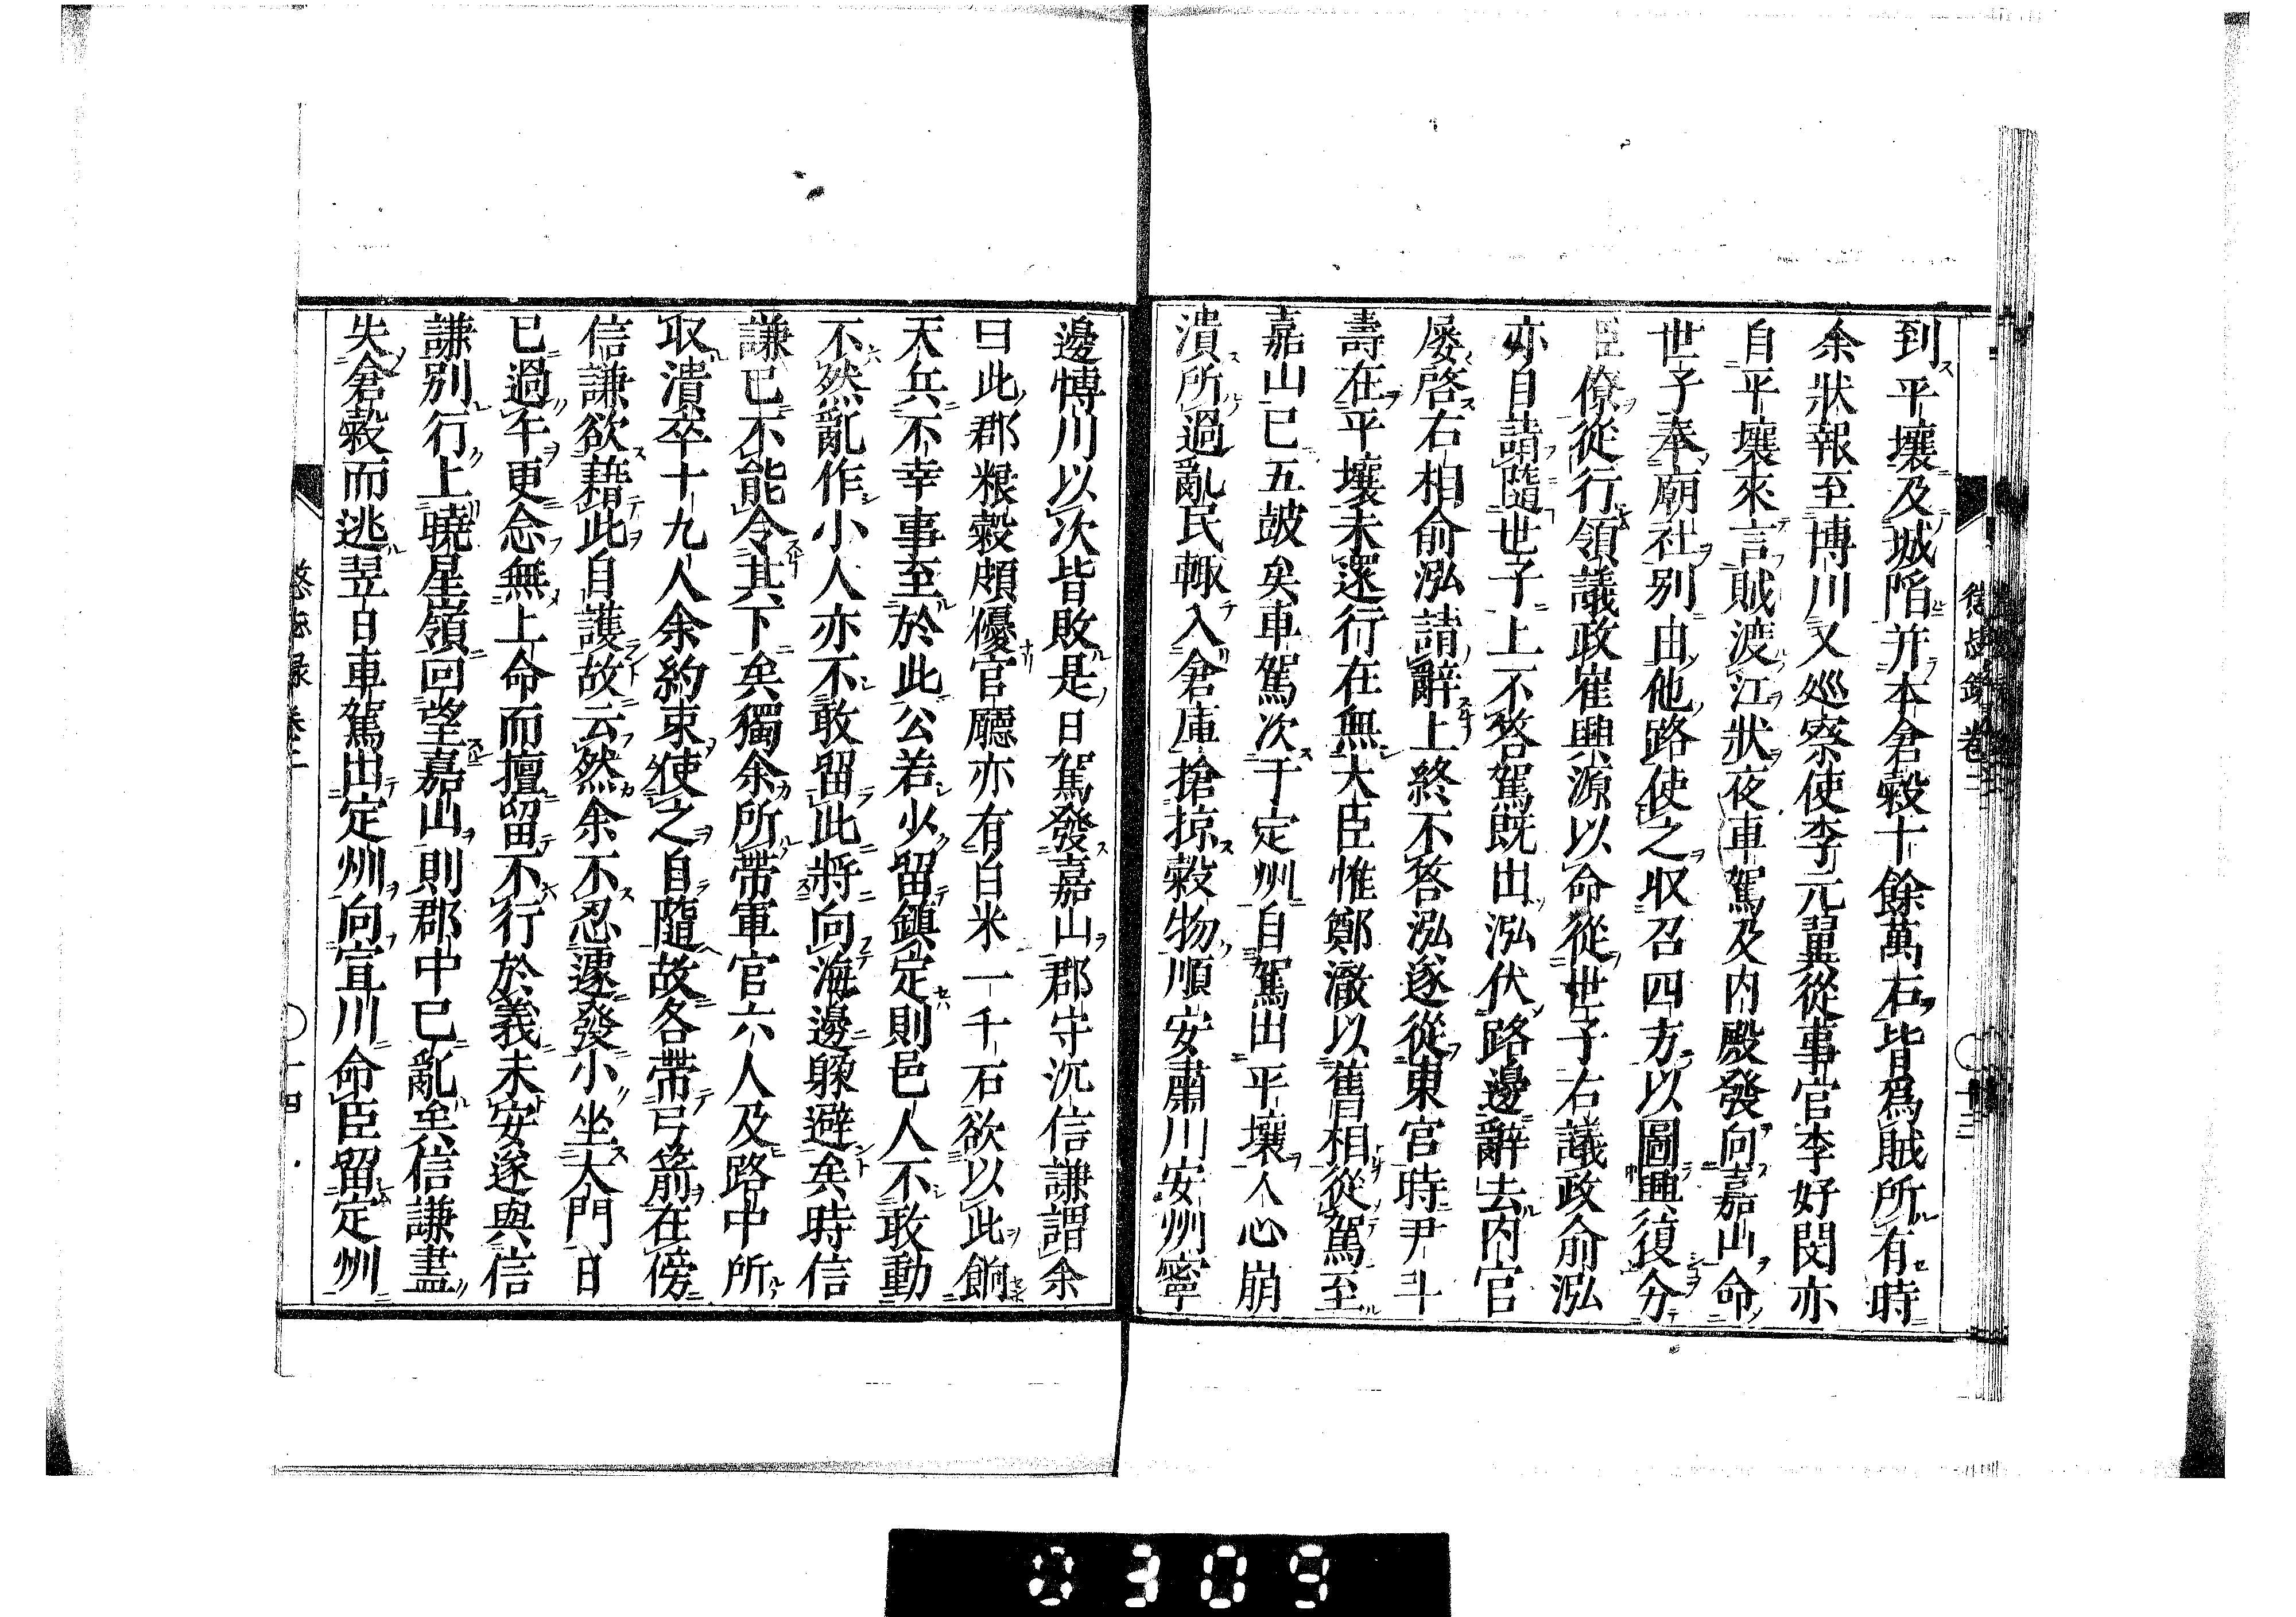 懲毖錄 卷二 十三
到平壤及城陷并本倉穀十餘萬石皆爲賊所有時
余狀報至博川又巡察使李元翼從事官李好閔亦
自平壤來言賊渡江狀夜車駕及内殿發向嘉山命
世子奉廟社别由他路使之収召四方以圖興復分
臣僚從行領議政崔興源以命從世子右議政俞泓
亦自請隨世子上不答駕既出泓伏路邊辭去内官
屡啓右相俞泓請辭上終不答泓遂從東宮時尹斗
壽在平壤未還行在無大臣惟鄭澈以舊相從駕至
嘉山已五皷矣車駕次于定州自駕出平壤人心崩
潰所過亂民輙入倉庫搶掠穀物順安肅川安州寧
邊博川以次皆敗是日駕發嘉山郡守沉信謙謂余
曰此郡粮穀頗優官廳亦有白米一千石欲以此餉
天兵不幸事至於此公若少留鎮定則邑人不敢動
不然亂作小人亦不敢留此將向海邊躱避矣時信
謙已不能令其下矣獨余所帶軍官六人及路中所
取潰卒十九人余約束使之自隨故各帶弓箭在傍
信謙欲藉此自護故云然余不忍遽發小坐大門日
已過午更念無上命而擅留不行於義未安遂與信
謙别行上曉星嶺回望嘉山則郡中已亂矣信謙盡
失倉穀而逃翌日車駕出定州向宣川命臣留定州
懲毖録 卷二 十四
0309